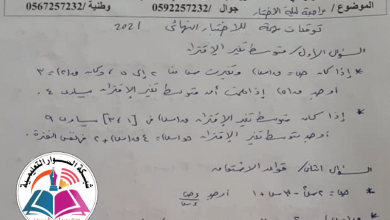 الموضوع / مراجعة ليلة الاختبار جوال / 0592257232 وطنية / 0567257232
توقعات مهمة للاختبار النهائي 2021
السؤال الأول / متوسط تغير الاقتران
* إذا كان ص = ق(س) وتغيرت س من 2 إلى 5 وكان ق(2) = 3
أوجد ق(5) إذا علمت أن متوسط تغير الاقتران يساوي 4.
* إذا كان متوسط تغير الاقتران ق(س) في [1،3] يساوي 9
أوجد متوسط تغير الاقتران هـ(س) = 4ق(س) + 2 في نفس الفترة.
السؤال الثاني / قواعد الاشتقاق
شبكة الصوار التعليمية